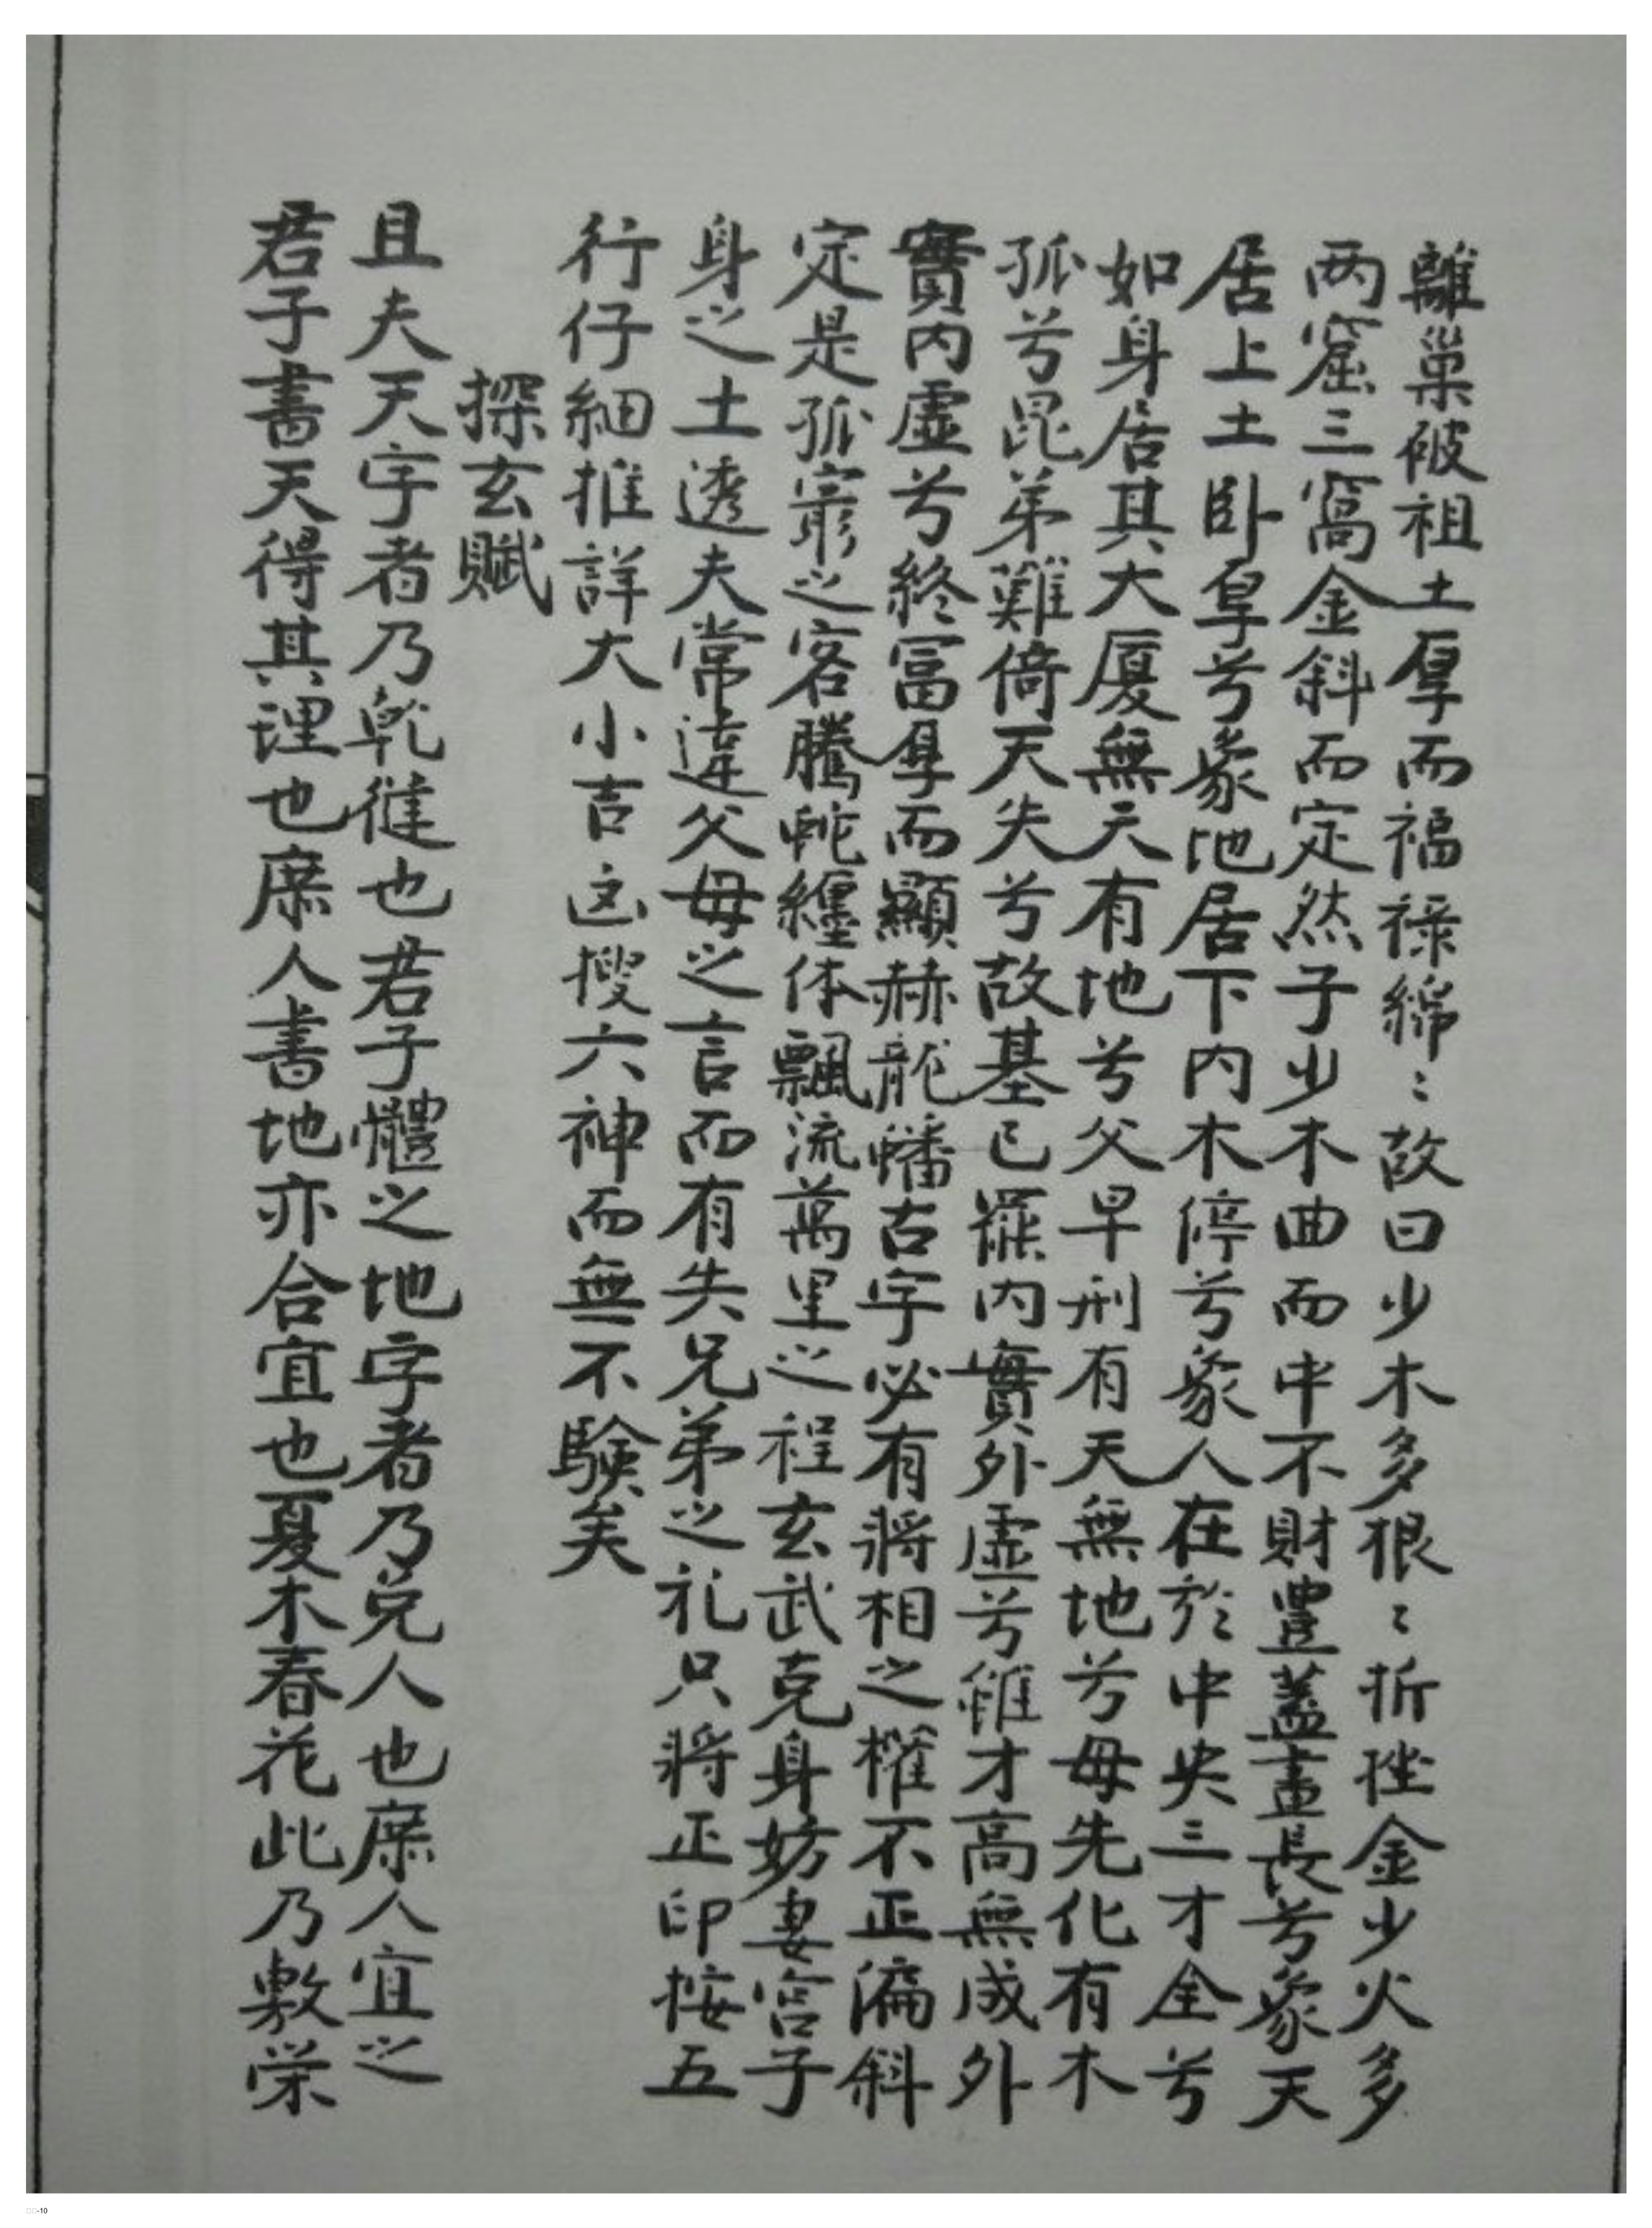 離巢破祖土厚而福祿綿〻故曰少木多根〻折挫金少火多
两窟三窩金斜而定然子少木曲而中不財豊蓋畫長兮象天
居上土卧厚兮象地居下内木停兮象人在於中央三才全兮
如身居其大厦無天有地兮父早刑有天無地兮母先化有木
孤兮昆弟難倚天失兮故基已罷内實外虛兮雖才高無成外
實内虛兮終冨厚而顯赫龍蟠古字必有將相之權不正偏斜
定是孤窮之客騰蛇纏体飄流萬里之程玄武克身妨妻宮子
身之土透夫常違父母之言而有失兄弟之礼只將正印按五
行仔細推詳大小吉这搜六神而無不驗矣
探玄賦
且夫天字者乃乹健也君子體之地字者乃兑人也庶人宜之
君子書天得其理也庶人書地亦合宜也夏木春花此乃敷栄